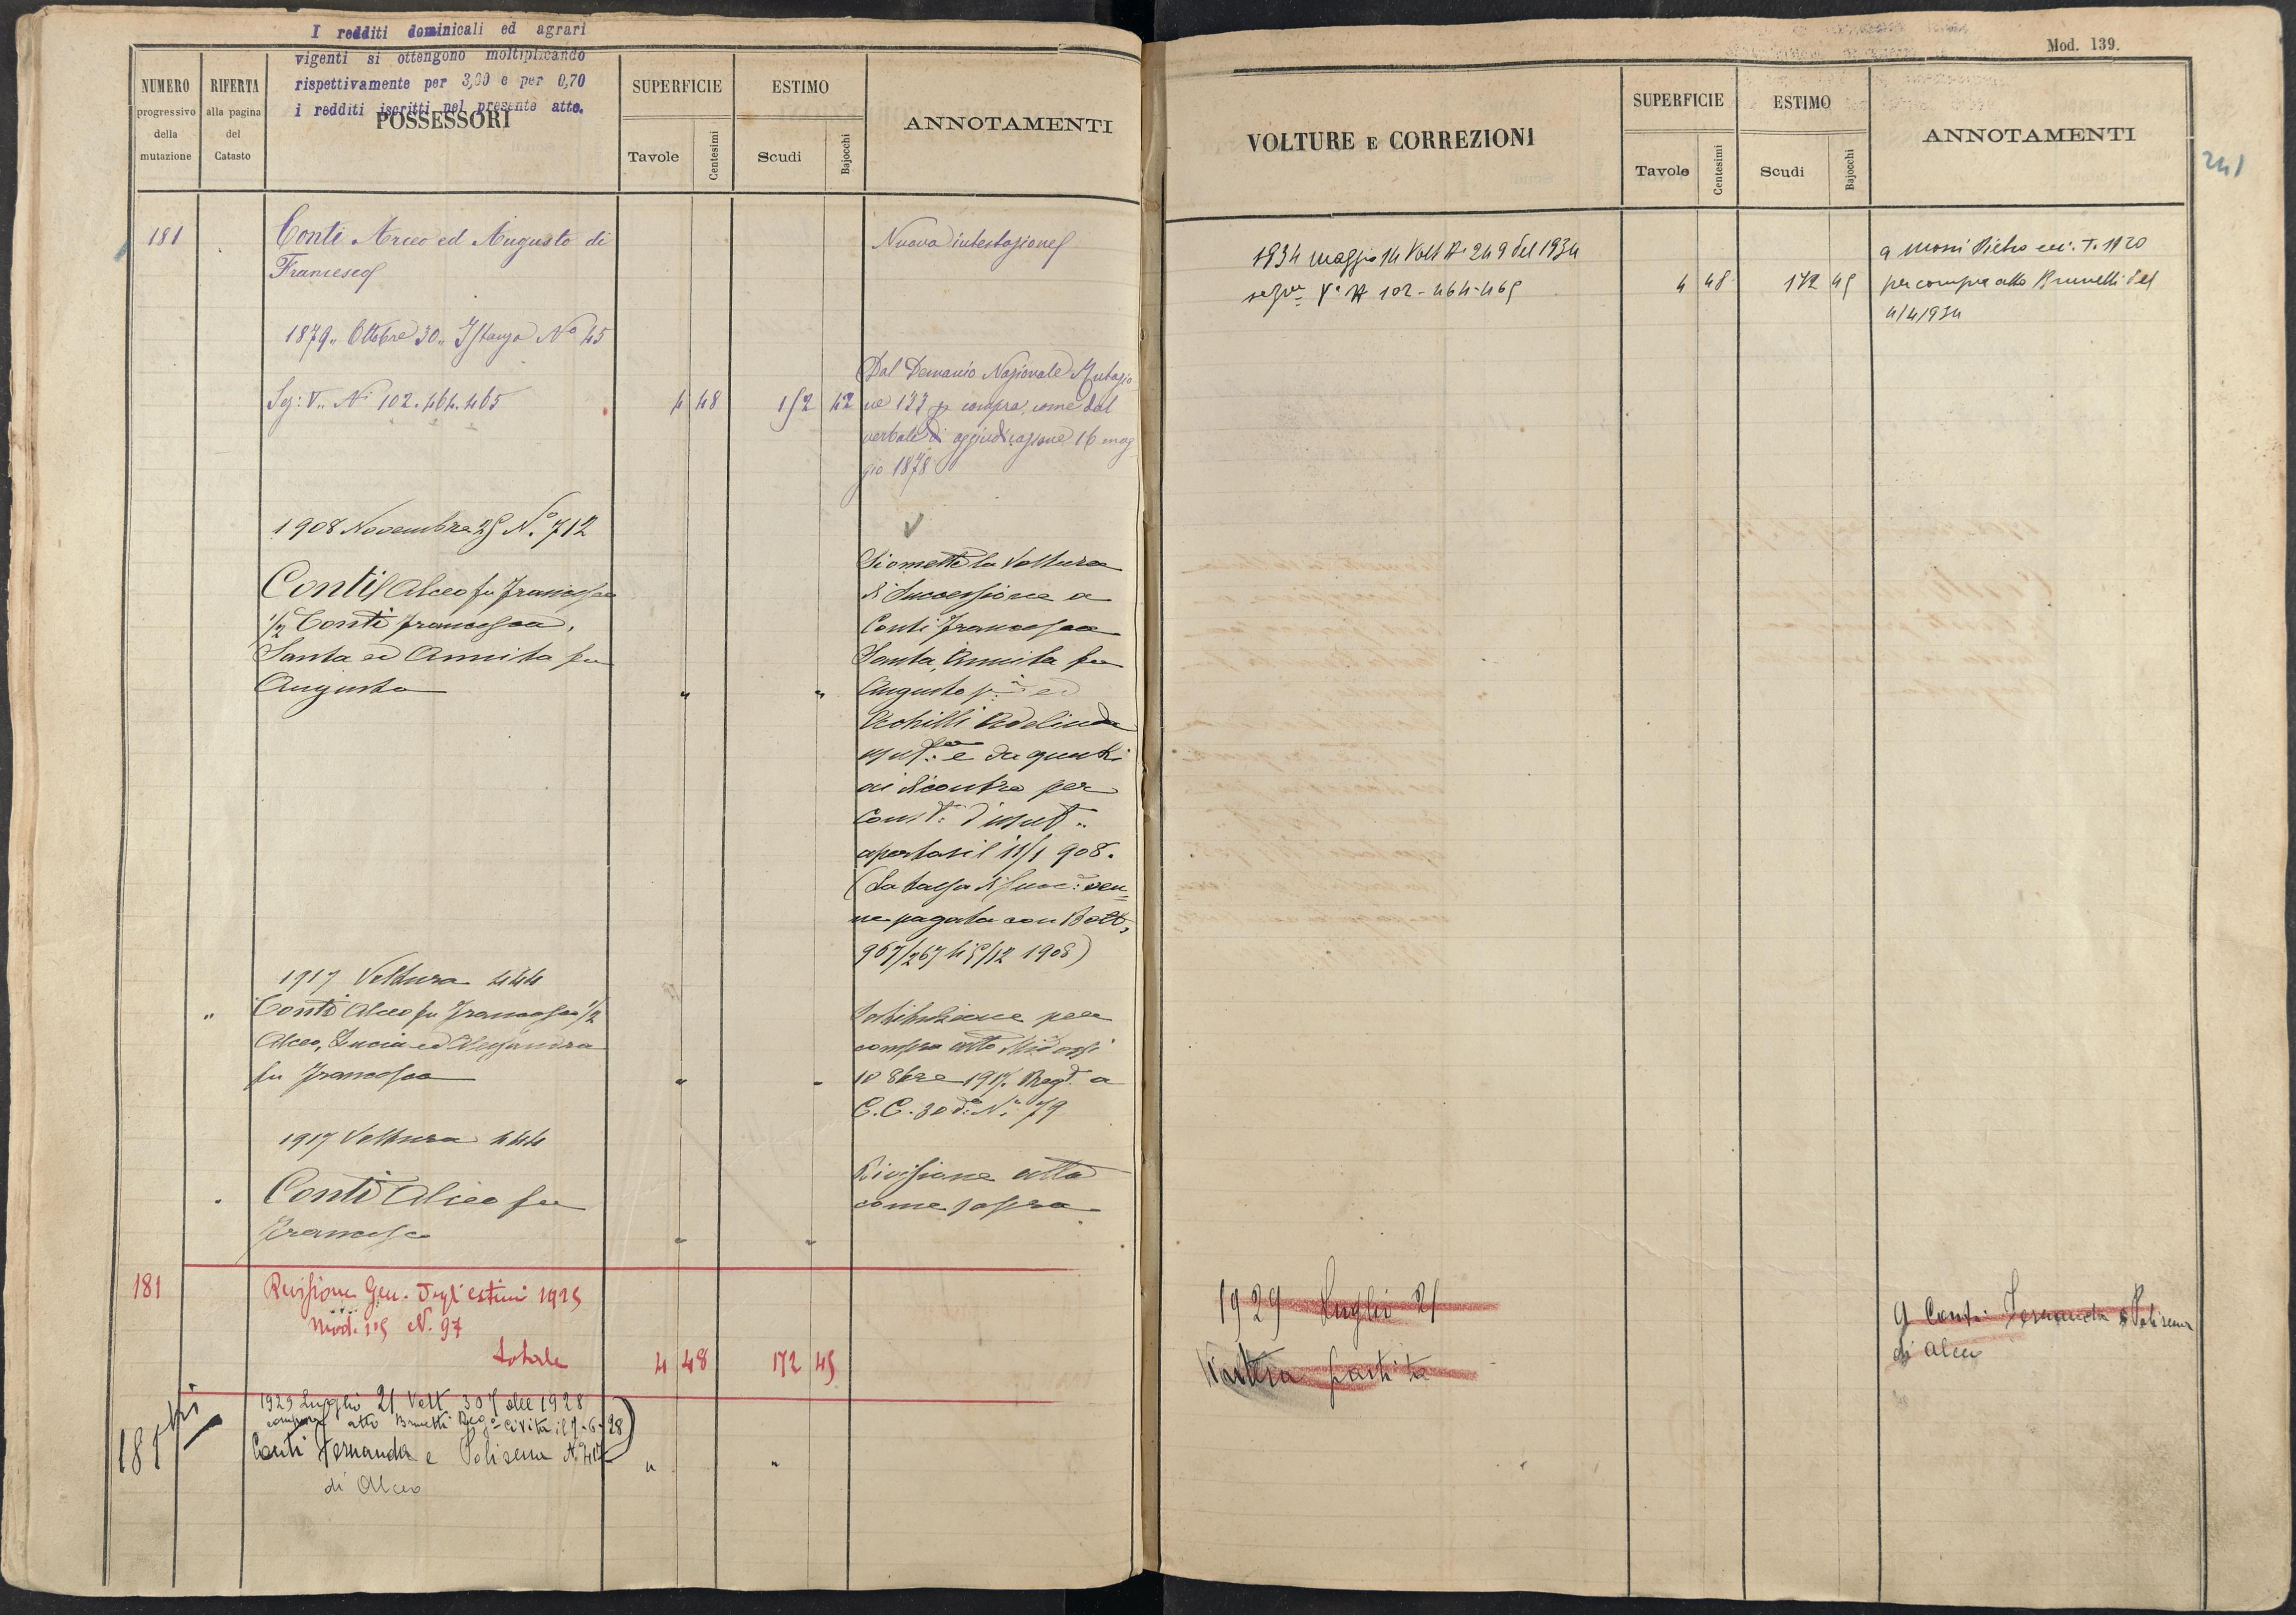 I redditi dominicali ed agrari
vigenti si ottengono moltiplicando
rispettivamente per 3,00 e per 0,70
i redditi iscritti nel presente atto.
NUMERO
progressivo
della
mutazione
RIFERTA
alla pagina
del
Catasto
POSSESSORI
SUPERFICIE
Tavole
Centesimi
ESTIMO
Scudi
Bajocchi
ANNOTAMENTI
181
Conti Arceo ed Augusto di
Francesco
Nuova intestazione
1879,, Ottobre 30,, Istanza No 45
Seg: V.. Ni 102. 464. 465
4 48
152 42
Dal Demanio Nazionale Mutazio
ne 133 p compra, come dal
verbale di aggiudicazione 16 mag
gio 1878
1908 Novembre 25 No. 712
Conti Alceo fu Francesco
1/2 Conti Francesca,
Santa ed Annita fu
Augusto
" "
Si omette la Voltura
di Successione a
Conti Francesca
Santa, Annita fu
Augusto ed
Achilli Adelinda
e da questi
ai discontro per
Cons. d'usuf.
apertasi l'11/1 908.
(La tassa di succ: ven=
ne pagata con Boll.
967/267 li 5/12 1908)
1917 Voltura 444
" Conti Alceo fu Francesco 1/2
Alceo, Lucia ed Alessandra
fu Francesco
" "
Istituzione per
compra atto
10 8bre 1917. Regd. a
C.C. 30 do: No. 79
1917 Voltura 444
" Conti Alceo fu
Francesco
" "
Divisione atto
come sopra
181
Revisione Gen. degl'estimi 1925
Mod. 105 N. 97
totale
4 48
172 45
181 bis
1929 Luglio 21 Volt 307 del 1928
compra atto Brunetti Rego Civita il 7-6-28
Conti Fernanda e Polisena No 417
di Alceo
" "
Mod. 139.
VOLTURE E CORREZIONI
SUPERFICIE
Tavole
Centesimi
ESTIMO
Scudi
Bajocchi
ANNOTAMENTI
241
1934 maggio 14 Volt No 249 del 1934
sezne Va No 102-464-465
4 48
172 45
a Pietro T. 1120
per compra atto Brunelli del
4/4/934
1929 Luglio 21
Voltura partita
a Conti Fernanda e Polisena
di Alceo